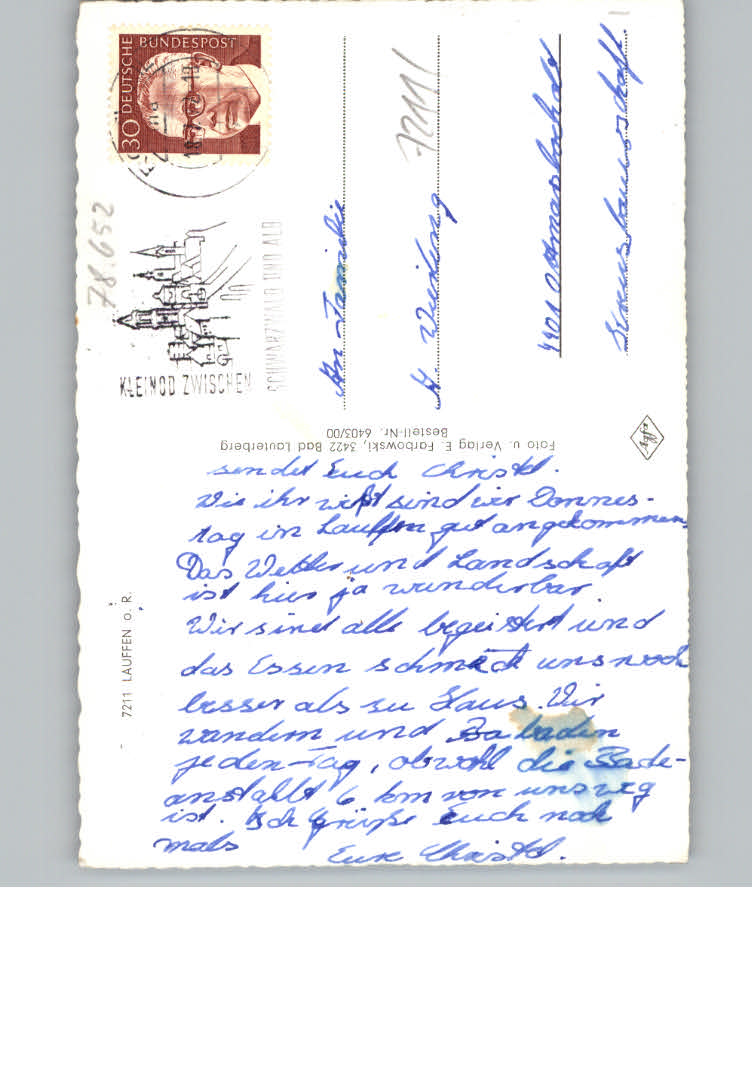 DEUTSCHE BUNDESPOST
30
78.652
KLEINOD ZWISCHEN
SCHWARZWALD UND ALB
7211
An Familie
H.
4401 Ottmarsbocholt
Kreuzbauerschaft
Foto u. Verlag E. Farbowski, 3422 Bad Lauterberg
Bestell-Nr. 6403/00
Agfa
7211 LAUFFEN o. R.
sendet Euch Christel.
Wie ihr wißt sind wir Donnes-
tag in Lauffen gut angekommen.
Das Wetter und Landschaft
ist hier ja wunderbar.
Wir sind alle begeistert und
das Essen schmeckt uns noch
besser als zu Haus. Wir
wandern und Ba baden
jeden Tag, obwohl die Bade-
anstallt 6 km von uns weg
ist. Ich grüße Euch noch
mals
Eure Christel.